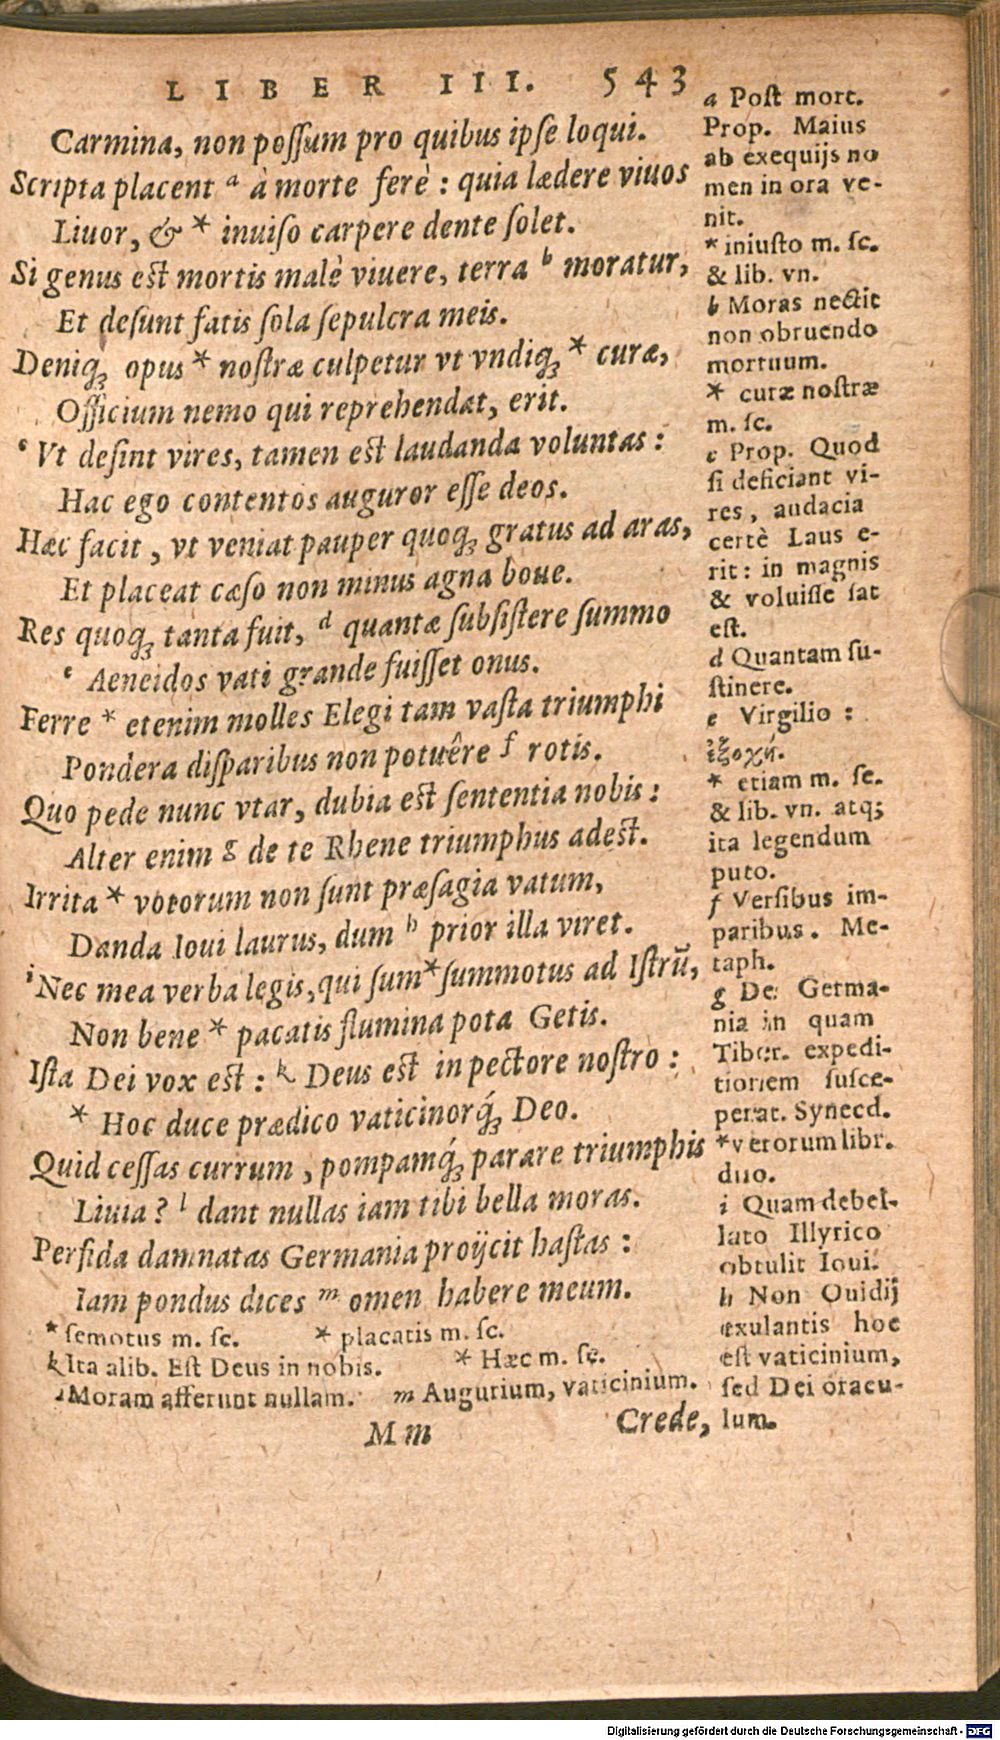 LIBER III. 543
Carmina, non possum pro quibus ipse loqui.
Scripta placent a à morte ferè : quia lædere viuos
Liuor, & * inuiso carpere dente solet.
Si genus est mortis malè viuere, terra b moratur,
Et desunt fatis sola sepulcra meis.
Deniq; opus * nostræ culpetur vt vndiq; * curæ,
Officium nemo qui reprehendat, erit.
c Vt desint vires, tamen est laudanda voluntas :
Hac ego contentos auguror esse deos.
Hæc facit, vt veniat pauper quoq; gratus ad aras,
Et placeat cæso non minus agna boue.
Res quoq; tanta fuit, d quantæ subsistere summo
e Aeneidos vati grande fuisset onus.
Ferre * etenim molles Elegi tam vasta triumphi
Pondera disparibus non potuêre f rotis.
Quo pede nunc vtar, dubia est sententia nobis :
Alter enim g de te Rhene triumphus adest.
Irrita * votorum non sunt præsagia vatum,
Danda Ioui laurus, dum h prior illa viret.
i Nec mea verba legis, qui sum * summotus ad Istrũ,
Non bene * pacatis flumina pota Getis.
Ista Dei vox est : k Deus est in pectore nostro :
* Hoc duce prædico vaticinorq́; Deo.
Quid cessas currum, pompamq́; parare triumphis
Liuia? l dant nullas iam tibi bella moras.
Perfida damnatas Germania proijcit hastas :
Iam pondus dices m omen habere meum.
* semotus m. sc. * placatis m. sc.
k Ita alib. Est Deus in nobis. * Hæc m. sc.
l Moram afferunt nullam. m Augurium, vaticinium.
M m Crede,
a Post mort.
Prop. Maius
ab exequijs no
men in ora ve-
nit.
* iniusto m. sc.
& lib. vn.
b Moras nectit
non obruendo
mortuum.
* curæ nostræ
m. sc.
c Prop. Quod
si deficiant vi-
res, audacia
certè Laus e-
rit: in magnis
& voluisse sat
est.
d Quantam su-
stinere.
e Virgilio :
ἐξοχή.
* etiam m. sc.
& lib. vn. atq;
ita legendum
puto.
f Versibus im-
paribus. Me-
taph.
g De Germa-
nia in quam
Tiber. expedi-
tionem susce-
perat. Synecd.
* verorum libr.
duo.
i Quam debel-
lato Illyrico
obtulit Ioui.
h Non Ouidij
exulantis hoc
est vaticinium,
sed Dei oracu-
lum.
Digitalisierung gefördert durch die Deutsche Forschungsgemeinschaft - DFG